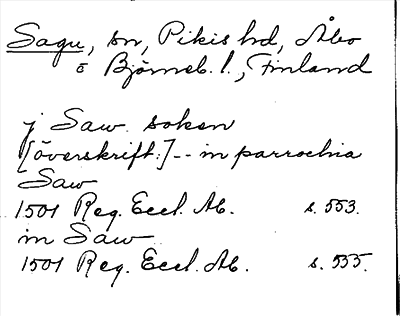 Sagu, sn, Pikis hd, Åbo
o Björneb. l., Finland
j Saw soken
[överskrift:] -- in parrochia
Saw
1501 Reg. Eccl. Ab. s. 553.
in Saw
1501 Reg. Eccl. Ab. s. 555.